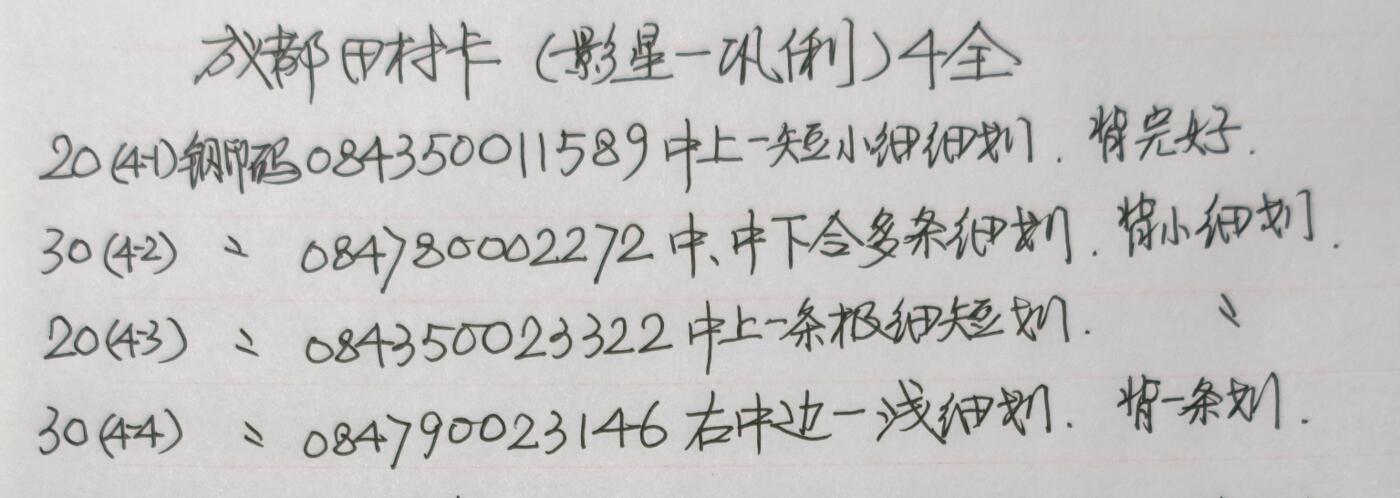 成都田村卡（影星一巩俐）4全
20(4-1)钢印码084350011589中上一短小细细划.背完好.
30(4-2) 〃 084780002272中、中下含多条细划.背小细划.
20(4-3) 〃 084350023322中上一条极细短划. 〃
30(4-4) 〃 084790023146右中边一浅细划.背一条划.